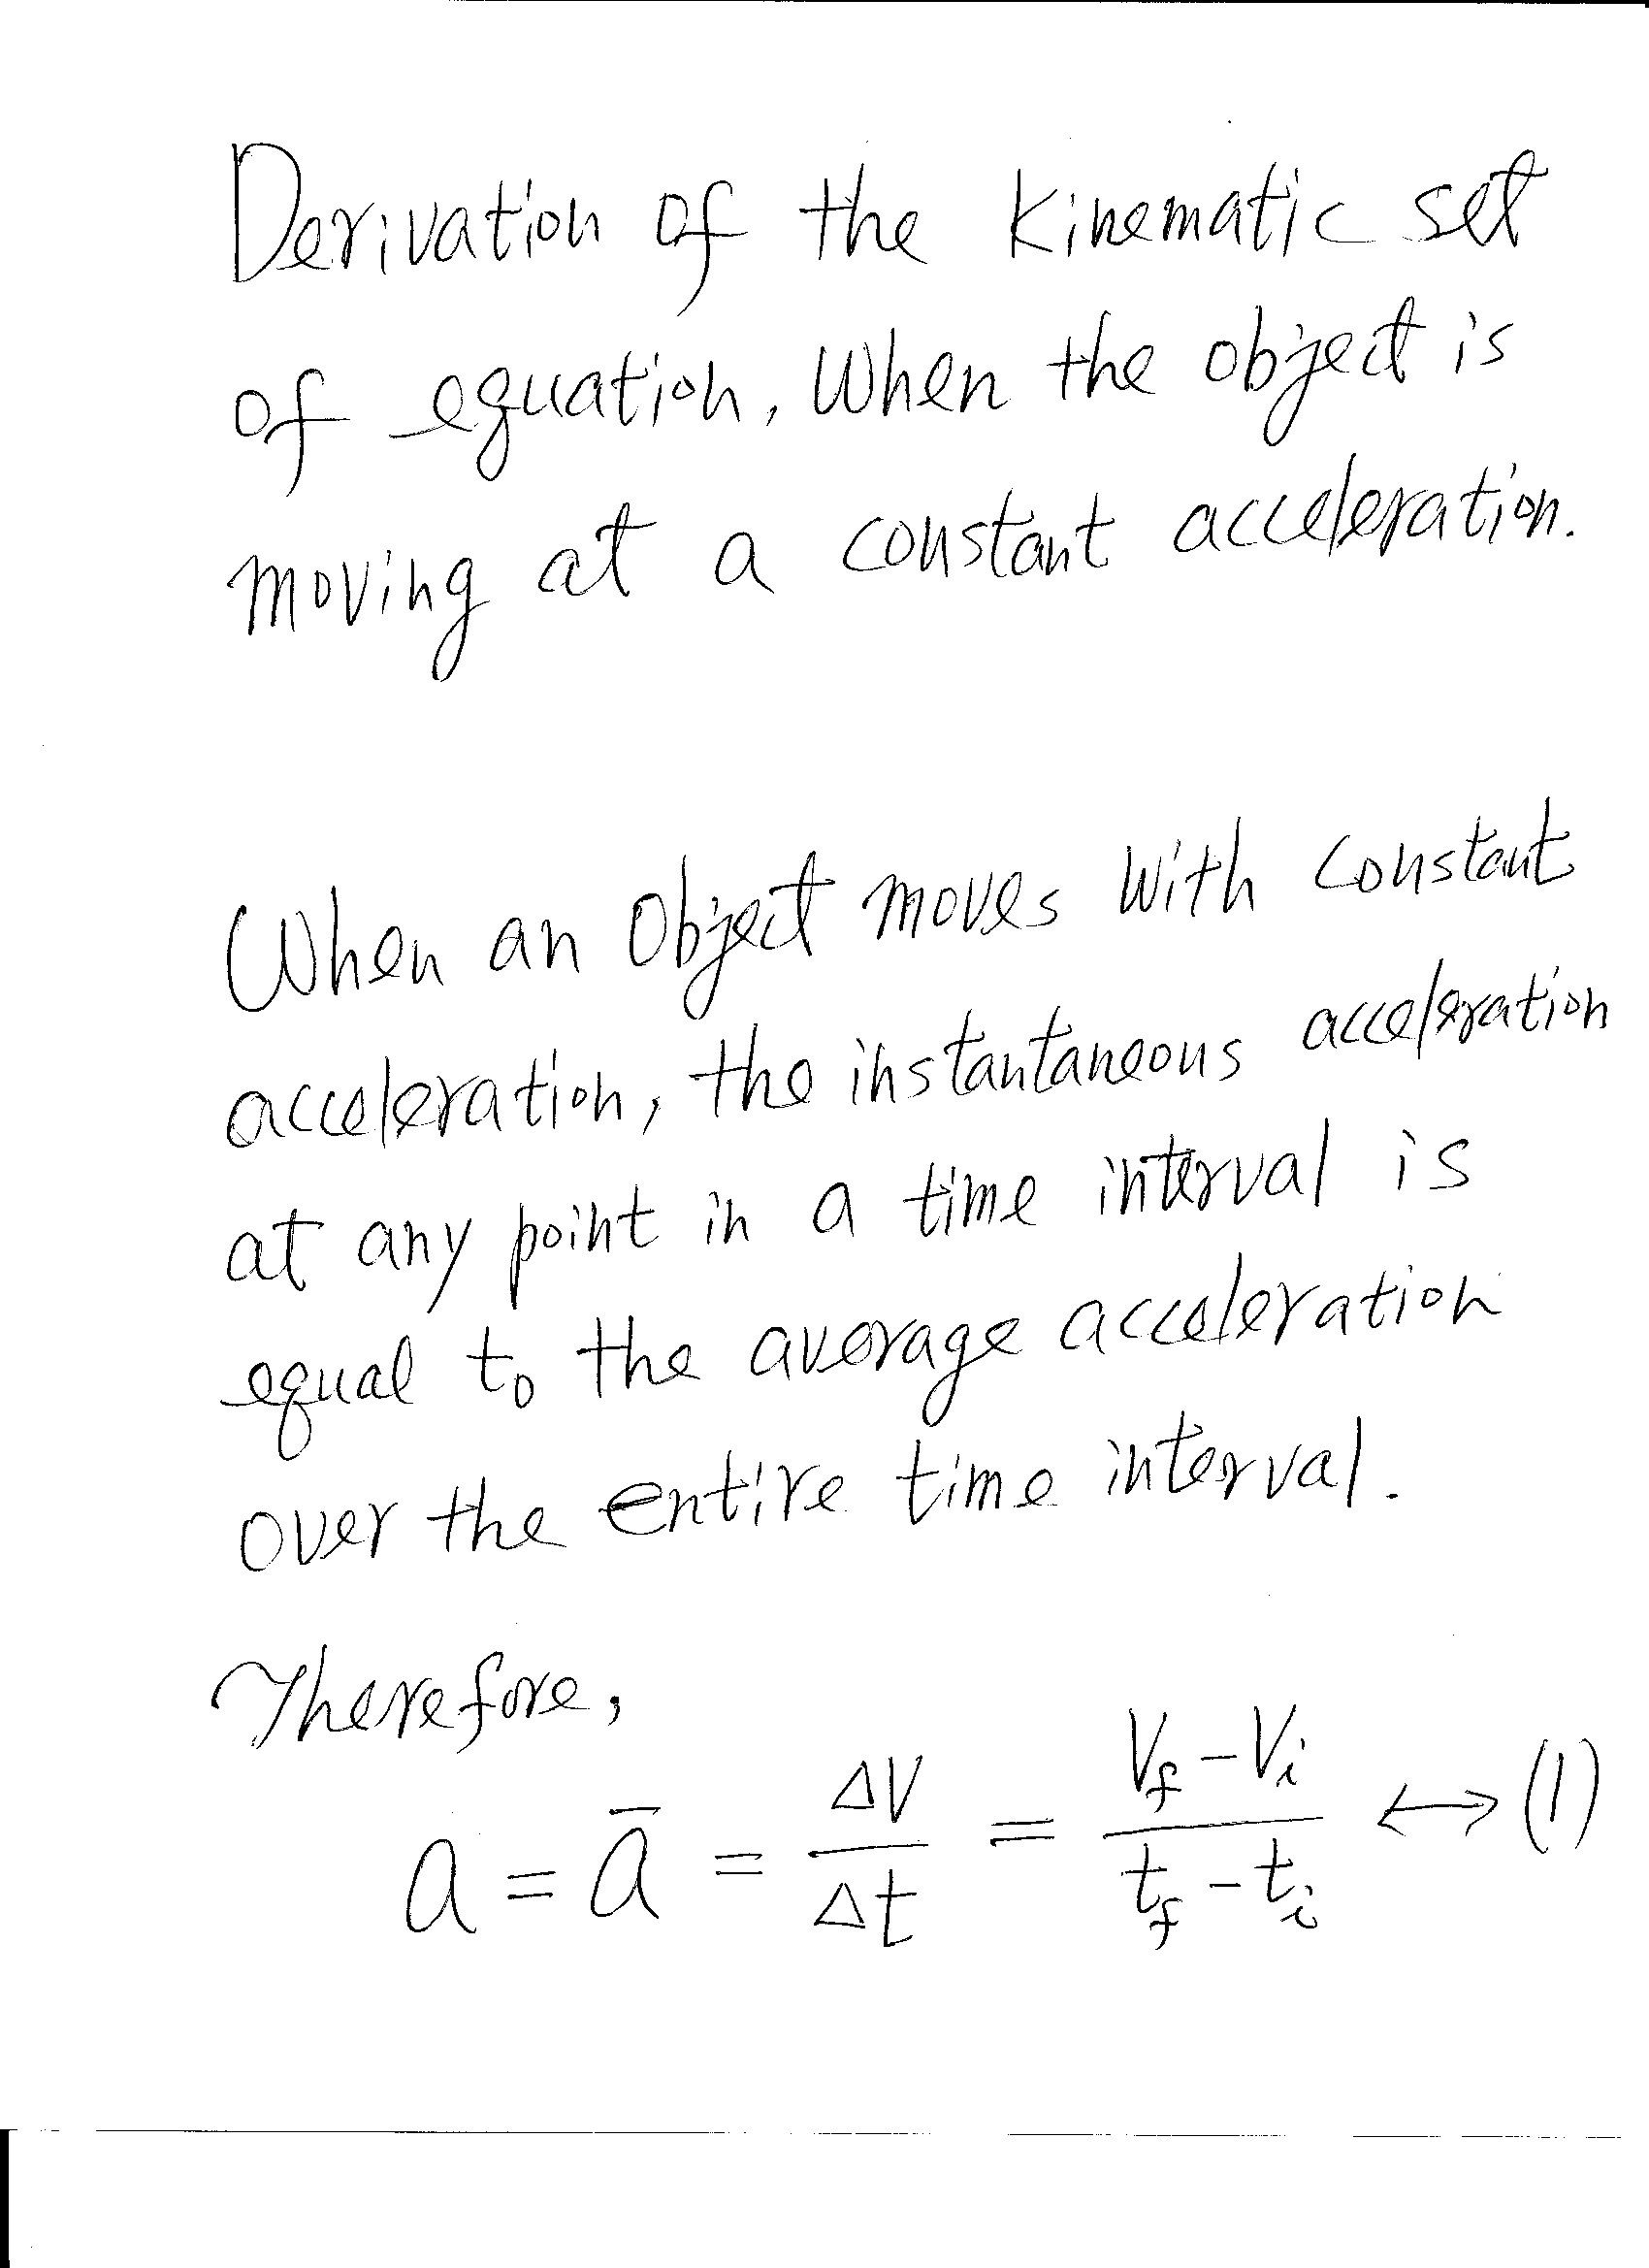 Derivation of the Kinematic set
of equation, When the object is
moving at a constant acceleration.
When an Object moves With constant
acceleration, the instantaneous acceleration
at any point in a time interval is
equal to the average acceleration
over the entire time interval.
Therefore,
a = ā = ΔV/Δt = (V_f - V_i)/(t_f - t_i) ↔ (1)